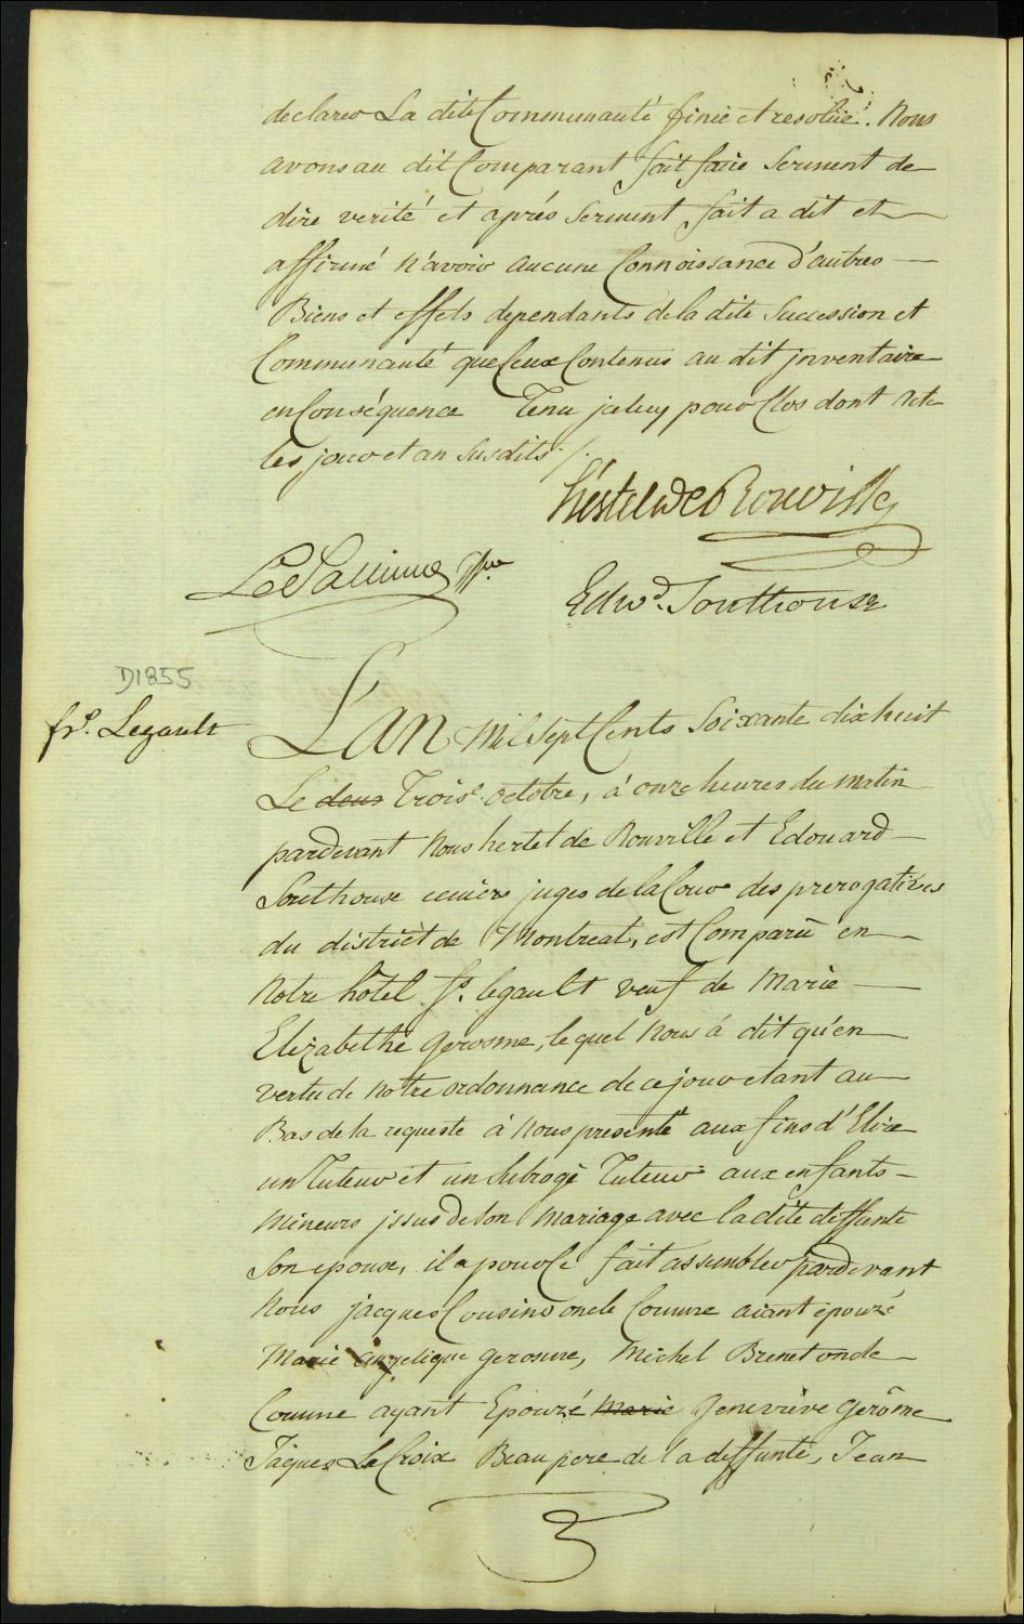 declarer La dite Communauté finie et resolüe. Nous
avons au dit Comparant fait faire Serment de
dire verité et aprés Serment fait a dit et
affirmé n'avoir aucune Connoissance d'autres
Biens et effets dependants de la dite Succession et
Communauté que Ceux Contenus au dit jnventaire
en Conséquence Tenu jceluy pour Clos dont acte
les jour et an Susdits /.
hertel De Rouville
Edwd. Southouse
D1855
frs. Legault
L'an Mil Sept Cents Soixante dix huit
Le deux Trois octobre, à onze heures du matin
pardevant Nous hertel de Rouville et Edouard
Southouse ecuiers juges de la Cour des prerogatives
du district de Montreal, est Comparû en
Notre hôtel fs. legault veuf de Marie
Elizabethe gerosme, lequel Nous à dit qu'en
vertu de Notre ordonnance de ce jour etant au
Bas de la requeste à Nous presenté aux fins d'Elire
un Tuteur et un Subrogé Tuteur aux enfants
Mineurs jssus de Son Mariage avec la dite deffunte
Son epouse, il a pour Ce fait assembler pardevant
Nous jacques Cousino oncle Comme aiant épouzé
Marie angelique gerosme, Michel Brenet oncle
Comme ayant Epouzé Marie Geneviève Gerôme
Jaques La Croix Beau pere de la deffunte, Jean